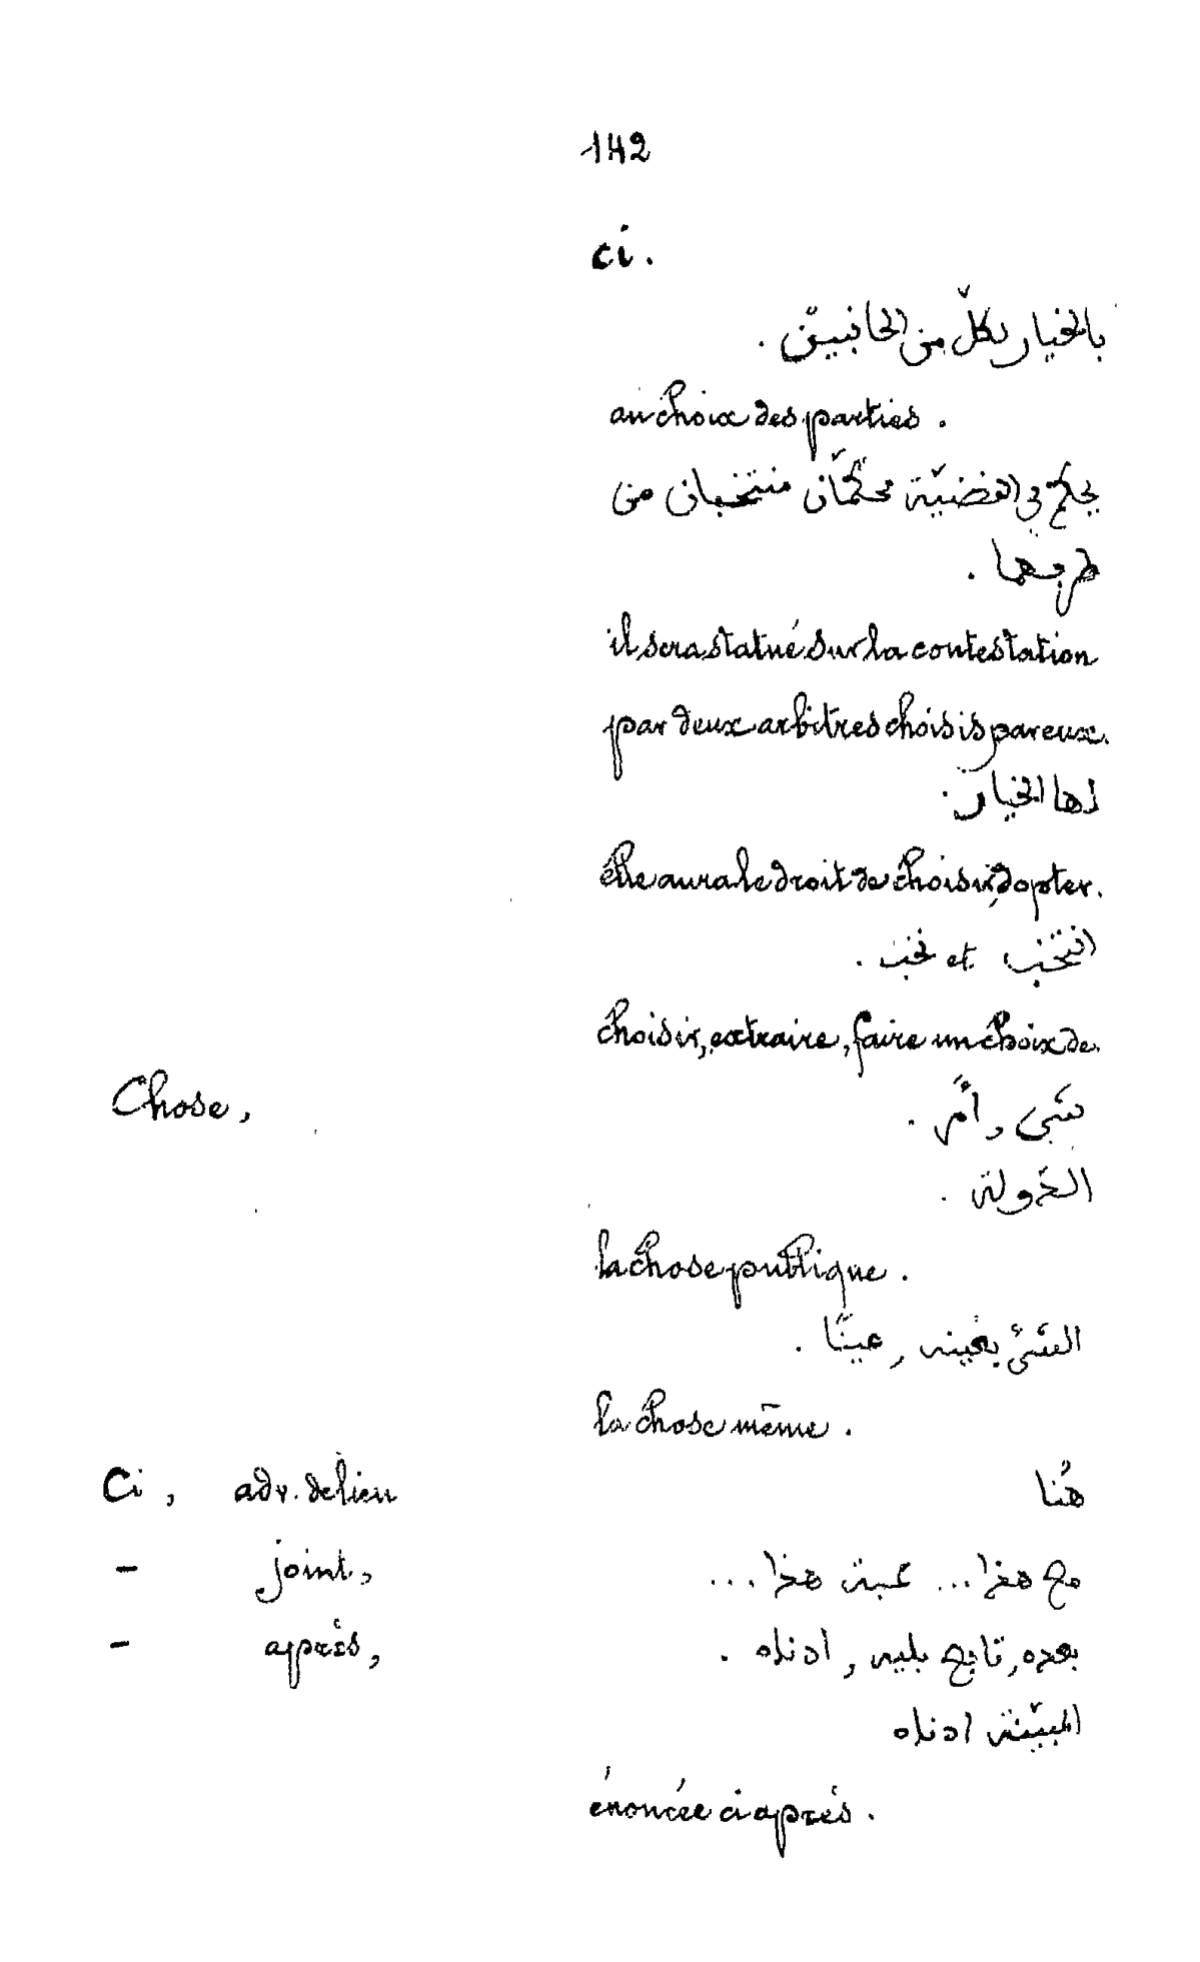 142
ci.
بالخيار لكلّ من الجانبين.
au choix des parties.
يحكم في القضيّة محكّمان منتخبان من
طرفهما.
il sera statué sur la contestation
par deux arbitres choisis par eux.
لها الخيار.
elle aura le droit de choisir, d'opter.
انتخب et نخب.
choisir, extraire, faire un choix de.
Chose, شَى و أمر.
الدَولة.
la chose publique.
الشَىْ بعَينه, عينًا.
la chose même.
Ci, adv. de lieu هُنا
- joint, مع هذا... صحبة هذا...
- après, بعده, تابع يليه, ادناه.
المبيّنة ادناه
énoncée ci après.